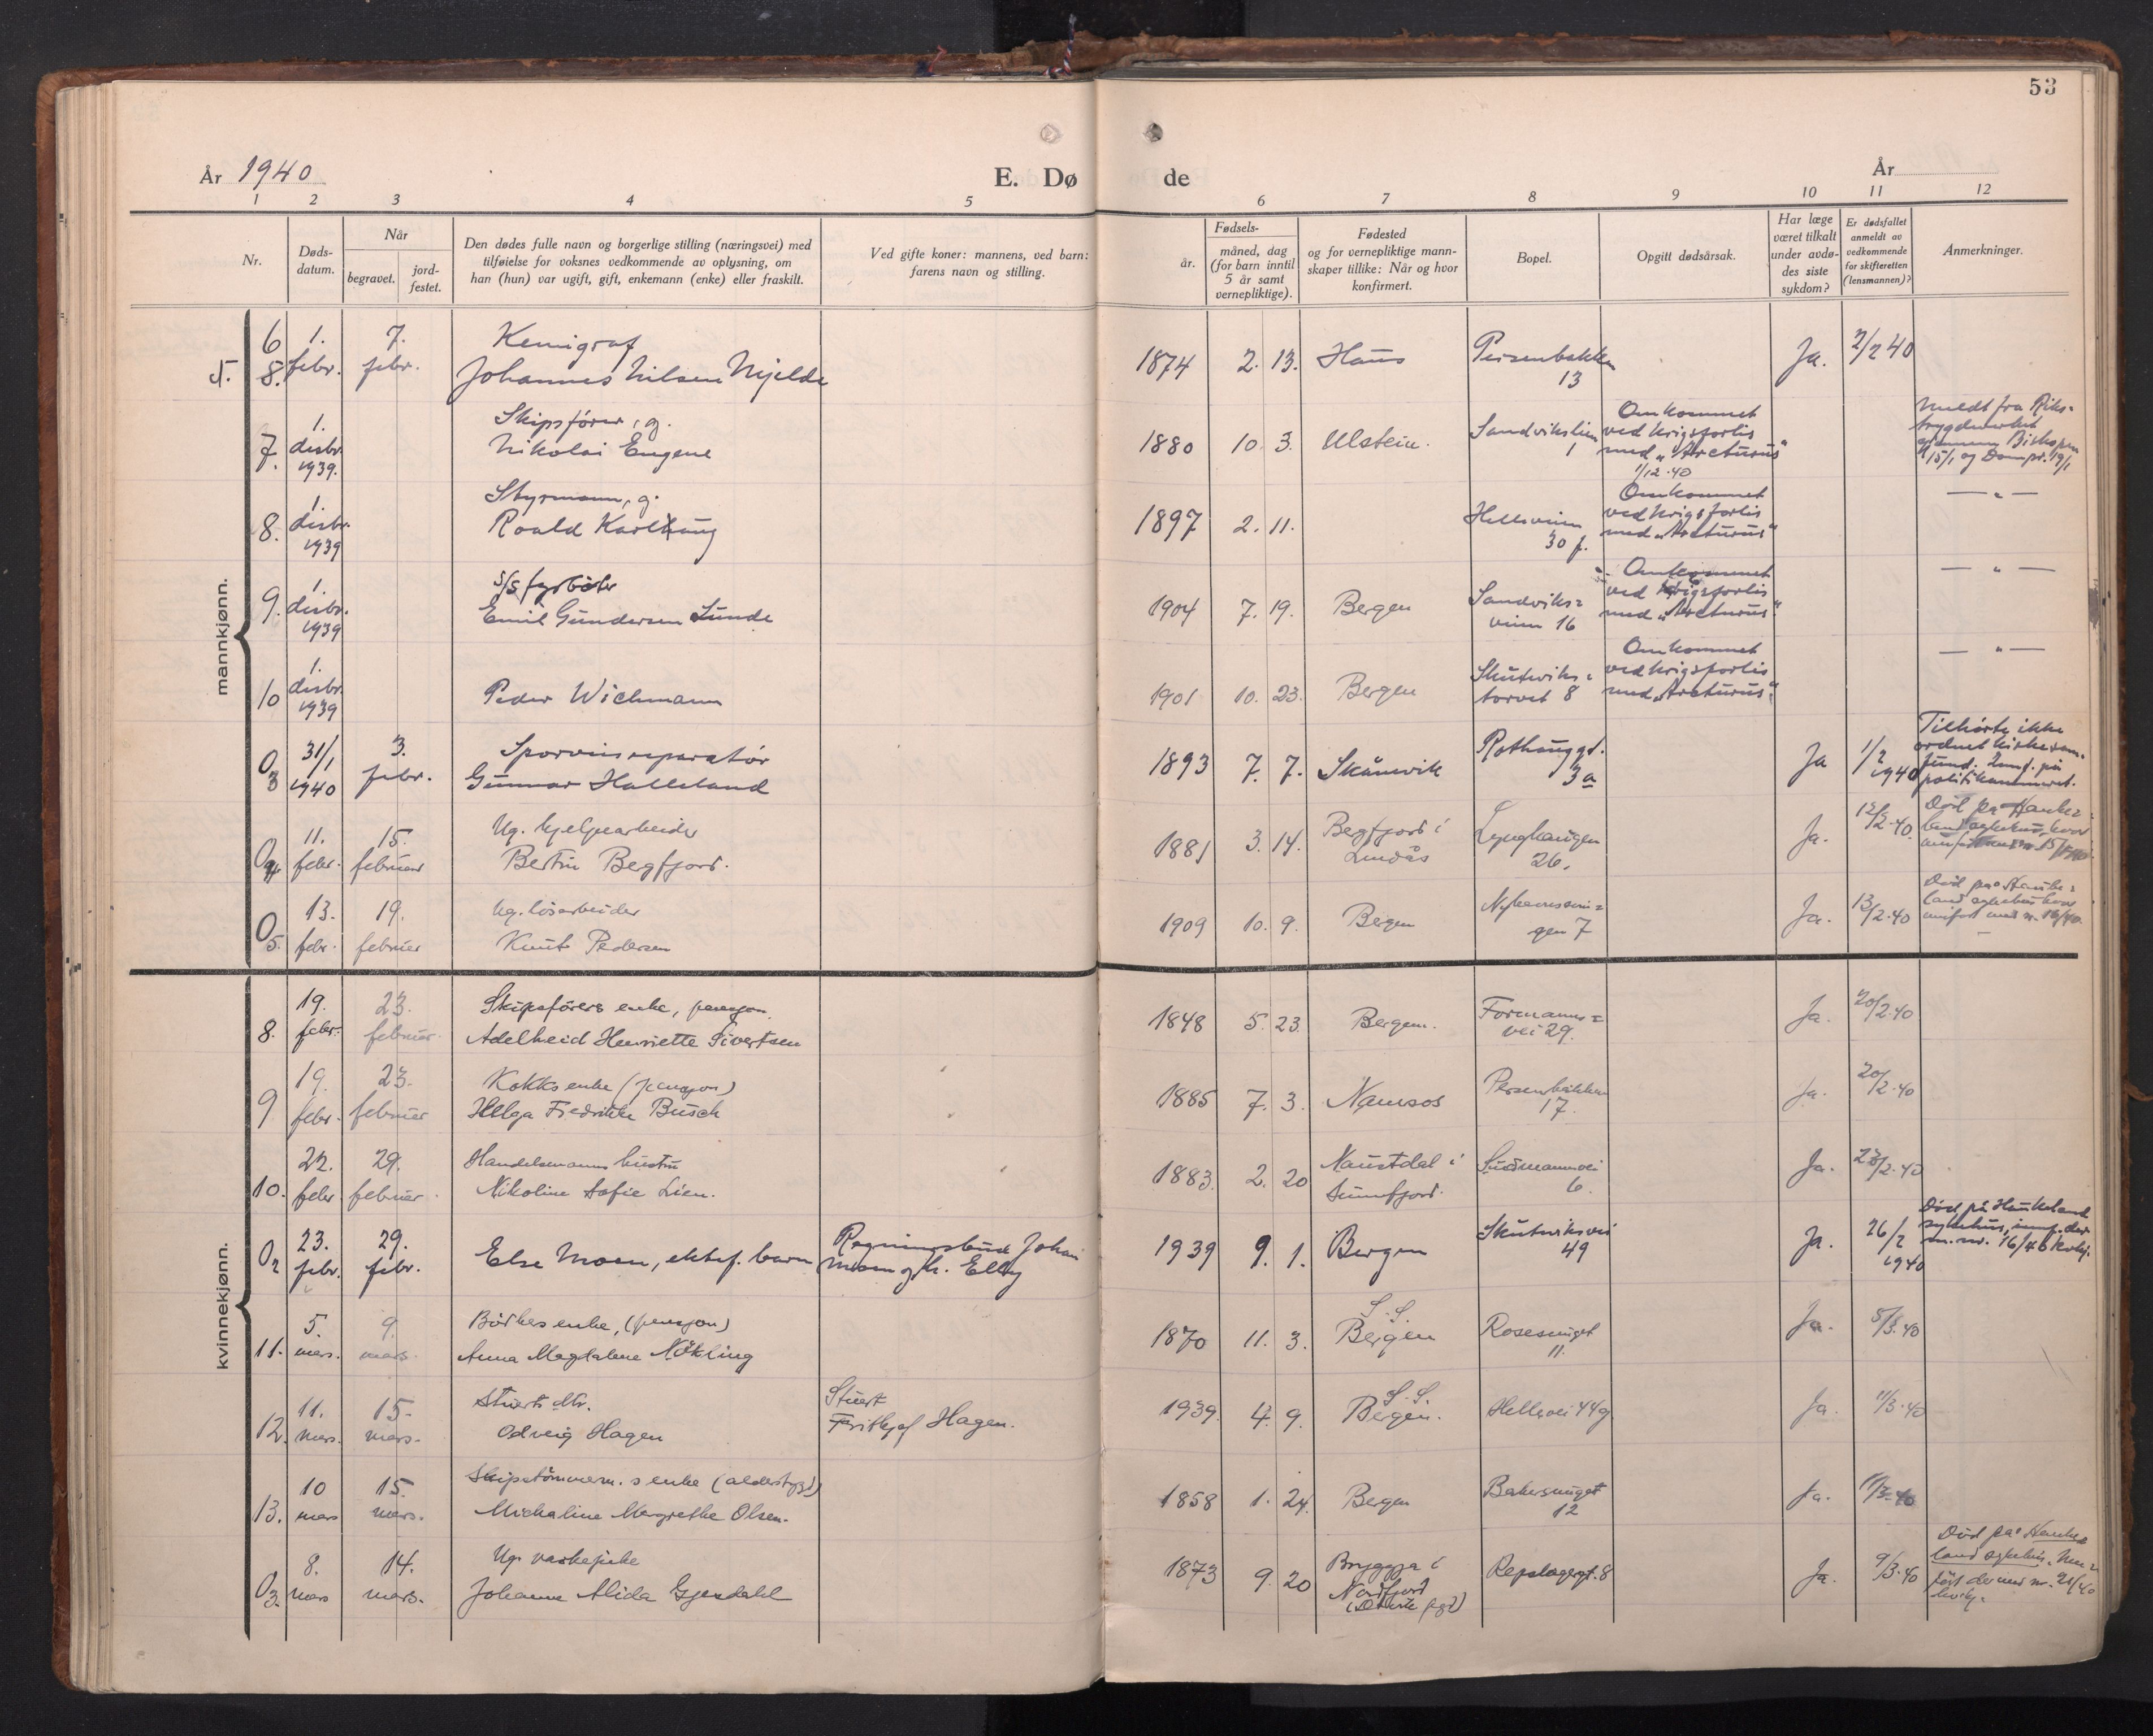 53
År 1940
E. Dø
de
År
1 2 3 4 5 6 7 8 9 10 11 12
Nr.
Døds-
datum.
Når
begravet.
jord-
festet.
Den dødes fulle navn og borgerlige stilling (næringsvei) med
tilføielse for voksnes vedkommende av oplysning, om
han (hun) var ugift, gift, enkemann (enke) eller fraskilt.
Ved gifte koner: mannens, ved barn:
farens navn og stilling.
år.
Fødsels-
måned, dag
(for barn inntil
5 år samt
vernepliktige).
Fødested
og for vernepliktige mann-
skaper tillike: Når og hvor
konfirmert.
Bopel.
Opgitt dødsårsak.
Har læge
været tilkalt
under avdø-
des siste
sykdom?
Er dødsfallet
anmeldt av
vedkommende
for skifteretten
(lensmannen)?
Anmerkninger.
mannkjønn.
6
8.
1.
febr.
7.
febr.
Kemigraf
Johannes Nilsen Mjelde
1874 2. 13. Haus
Persenbakken
13
Ja. 2/2 40
7.
1.
desbr.
1939.
Skipsfører, g.
Nikolai Eugene
1880 10. 3. Ulstein.
Sandvikslien
1
Omkommet
ved krigsforlis
med „Arcturus"
1/12.40
Meldt fra Riks-
trygdeverket
gjennem Biskopen
15/1 og Dompr. 19/1
8.
1.
desbr.
1939
Styrmann, g.
Roald Karlhaug
1897 2. 11.
Helleveien
30 f.
Omkommet
ved krigsforlis
med „Arcturus"
— " —
9.
1.
desbr.
1939
s/s fyrbøter
Emil Gundersen Lunde
1904 7. 19. Bergen
Sandviks-
veien 16
Omkommet
ved krigsforlis
med „Arcturus"
— " —
10
1.
desbr.
1939
Peder Wichmann
1901 10. 23. Bergen
Skuteviks-
torvet 8
Omkommet
ved krigsforlis
med „Arcturus"
— " —
0 3
31/1
1940
3.
febr.
Sporveisreparatør
Gunnar Halleland
1893 7. 7. Skånevik
Rothauggt.
3a
Ja
1/2
1940
Tilhørte ikke
ordnet kirkesam-
fund. Innf. på
politikammeret.
0 4
11.
febr.
15.
februar
Ug. hjelpearbeider
Bertin Bergfjord.
1881 3. 14.
Bergfjord i
Lindås
Lynghaugen
26.
Ja. 12/2.40.
Død på Hauke-
land sykehus, hvor
0 5.
13.
febr.
19.
februar
Ug. løsarbeider
Knut Pedersen
1909 10. 9. Bergen
7
Ja. 13/2.40
Død på Hauke-
land sykehus hvor
innført med nr. 16/40.
kvinnekjønn.
8.
19.
febr.
23.
februar.
Skipsførers enke, pensjon.
Adelheid Henriette Sivertsen
1848 5. 23. Bergen.
Formanns-
vei 29.
Ja. 20/2.40
9
19.
febr.
23.
februar
Kokks enke (pensjon)
Helga Fredrikke Busch
1885 7. 3. Namsos
Persenbakken
17.
Ja. 20/2.40
10.
22.
febr
29.
februar.
Handelsmanns hustru
Nikoline Sofie Lien.
1883. 2. 20
Naustdal i
Sunnfjord.
6.
Ja. 23/2.40
0 2
23.
febr.
29.
febr.
Else Moen, ektef. barn
Regningsbud Johan
Moen og h. Elly
1939 9. 1. Bergen
Skuteviksvei
49
Ja.
26/2
1940
Død på Haukeland
sykehus, innf. der
m. nr. 16/40 kvkj.
11.
5.
mars.
9.
mars.
Bødkers enke, (pensjon)
Anna Magdalene Nökling
1870 11. 3.
S. S.
Bergen
Rosesmuget
11.
Ja. 8/3.40
12.
11.
mars.
15.
mars.
Stuerts dtr.
Odveig Hagen
Stuert
Frithjof Hagen.
1939. 4. 9.
S. S.
Bergen.
Hellevei 44g
Ja. 11/3.40
13.
10
mars
15.
mars.
Skipstømmerm.s enke (alderstygd)
Michaline Margrethe Olsen.
1858 1. 24. Bergen
Bakersmuget
12
Ja. 11/3.40
0 3.
8.
mars
14.
mars.
Ug. vaskepike
Johanne Alida Gjesdahl
1873 9. 20
Bryggja i
Nordfjord
Repslagergt. 8
Ja. 9/3.40
Død på Hauke-
land sykehus. Inn-
ført der med nr. 21/40
kvkj.